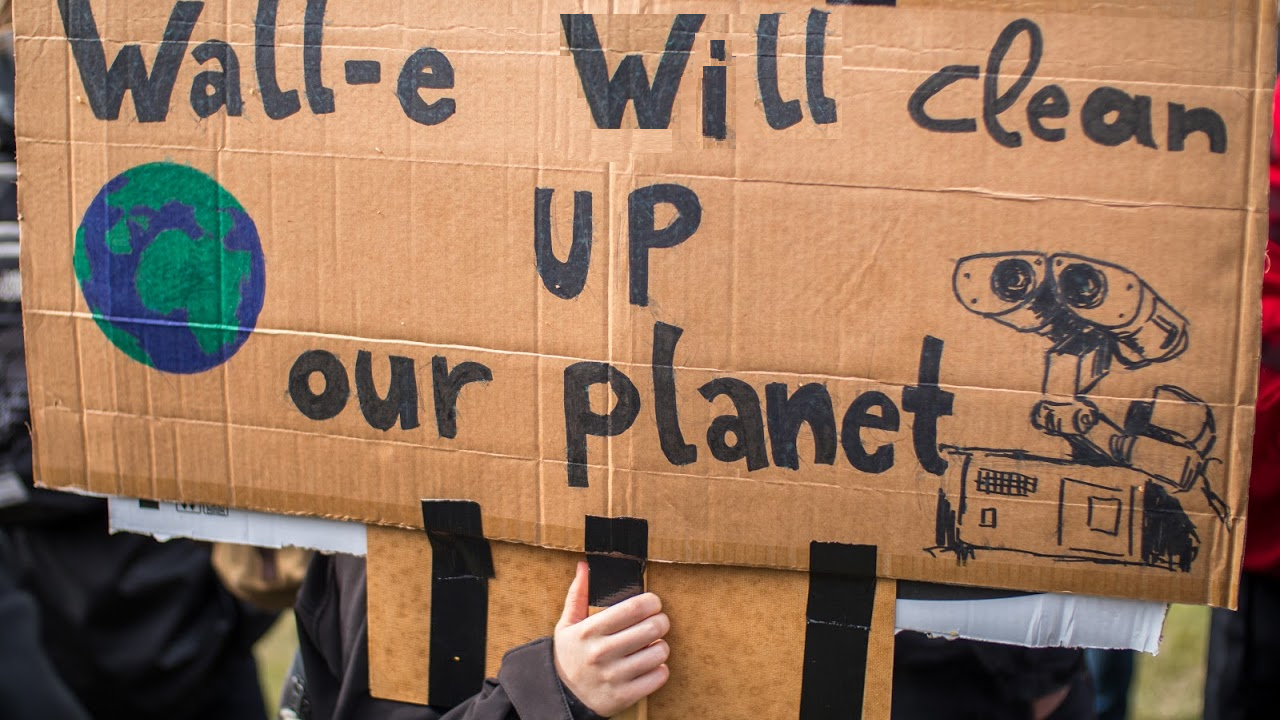 Wall-e Will clean
UP
our planet